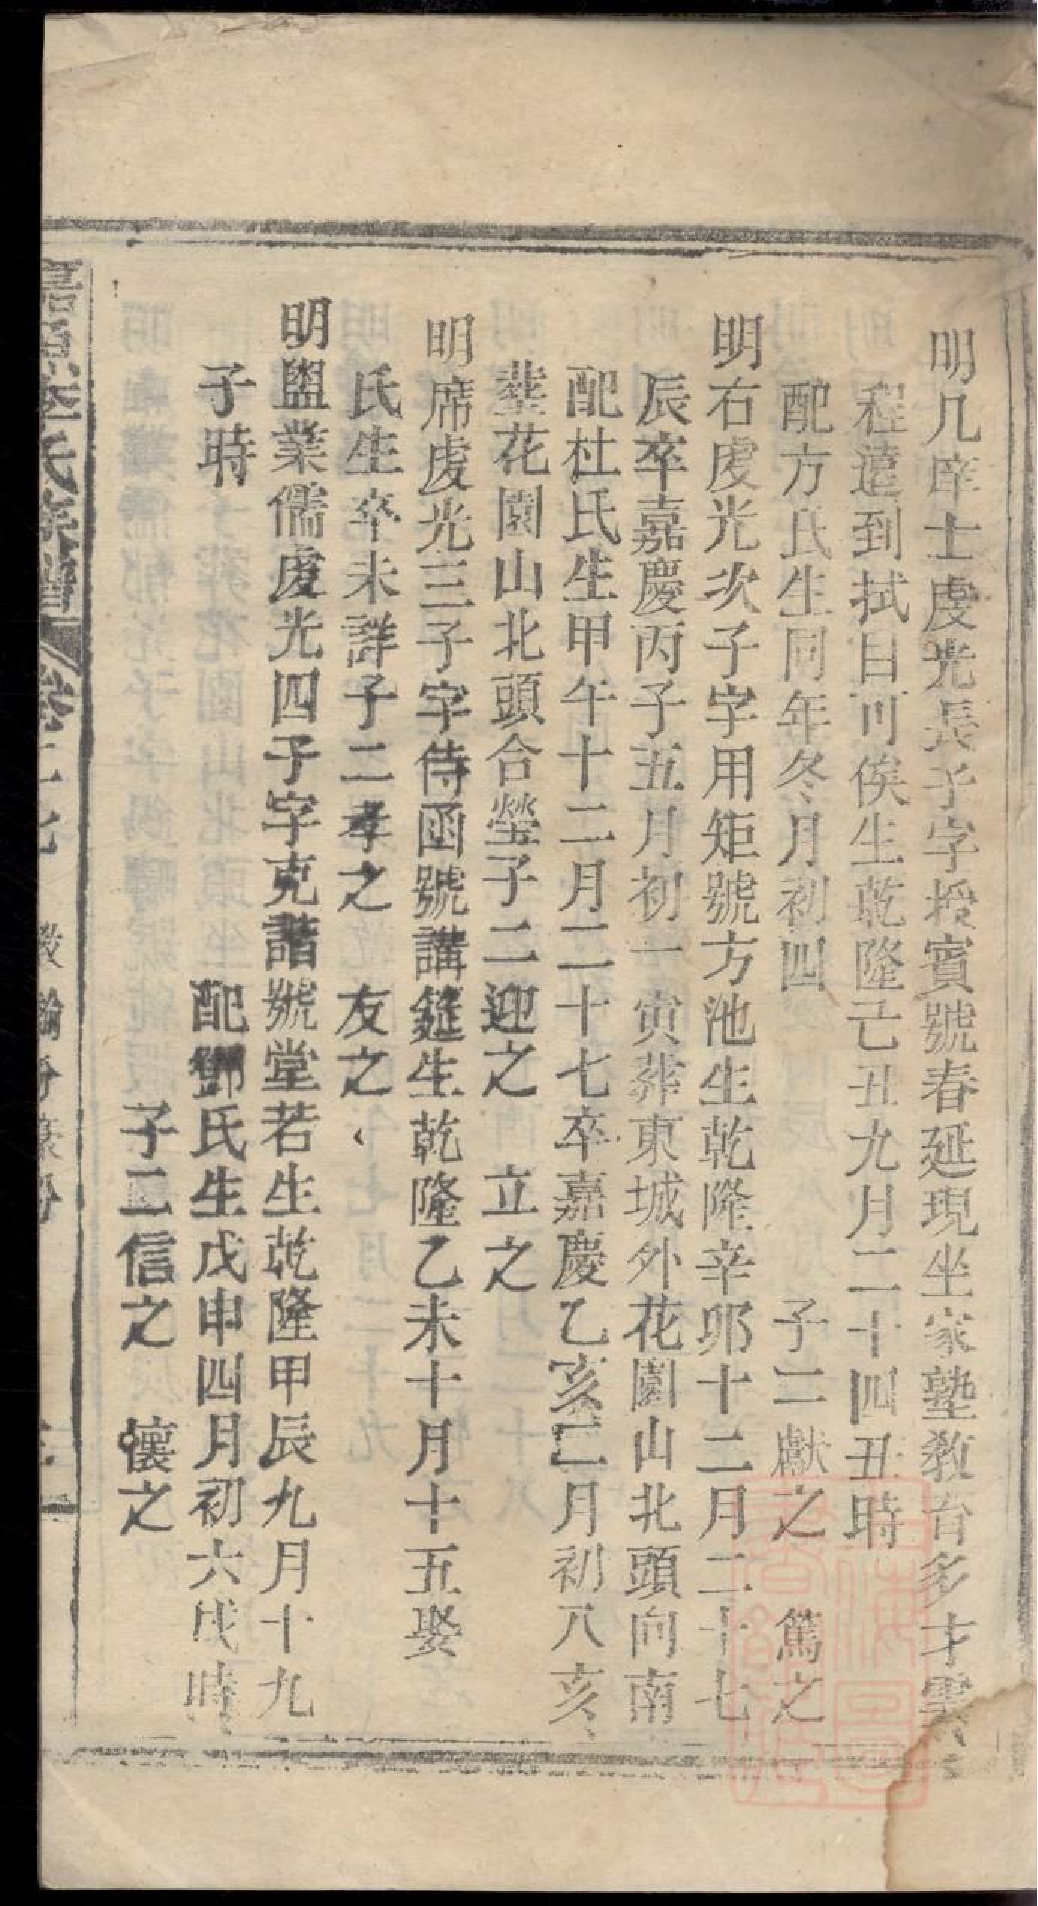 明几庠士虔光長子字授賓號春延現坐家塾教育多才雲
程遠到拭目可俟生乾隆己丑九月二十四丑時
配方氏生同年冬月初四 子二獻之 篤之
明右虔光次子字用矩號方池生乾隆辛卯十二月二十七
辰卒嘉慶丙子五月初一寅葬東城外花園山北頭向南
配杜氏生甲午十二月二十七卒嘉慶乙亥二月初八亥
塟花園山北頭合瑩子二迎之 立之
明席虔光三子字侍函號講筵生乾隆乙未十月十五娶
氏生卒未詳子二孝之 友之
明盥業儒虔光四子字克諧號堂若生乾隆甲辰九月十九
子時 配鄧氏生戊申四月初六戌時
子二信之 懷之
李氏 譜 卷十七